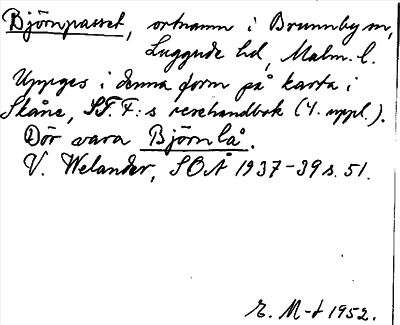 Björnpasset, ortnamn i Brunnby sn,
Luggude hd, Malm. l.
Uppges i denna form på karta i
Skåne, STF:s resehandbok (4. uppl.).
Bör vara Björnlå.
V. Welander, SOÅ 1937-39 s. 51.
E. M-t 1952.